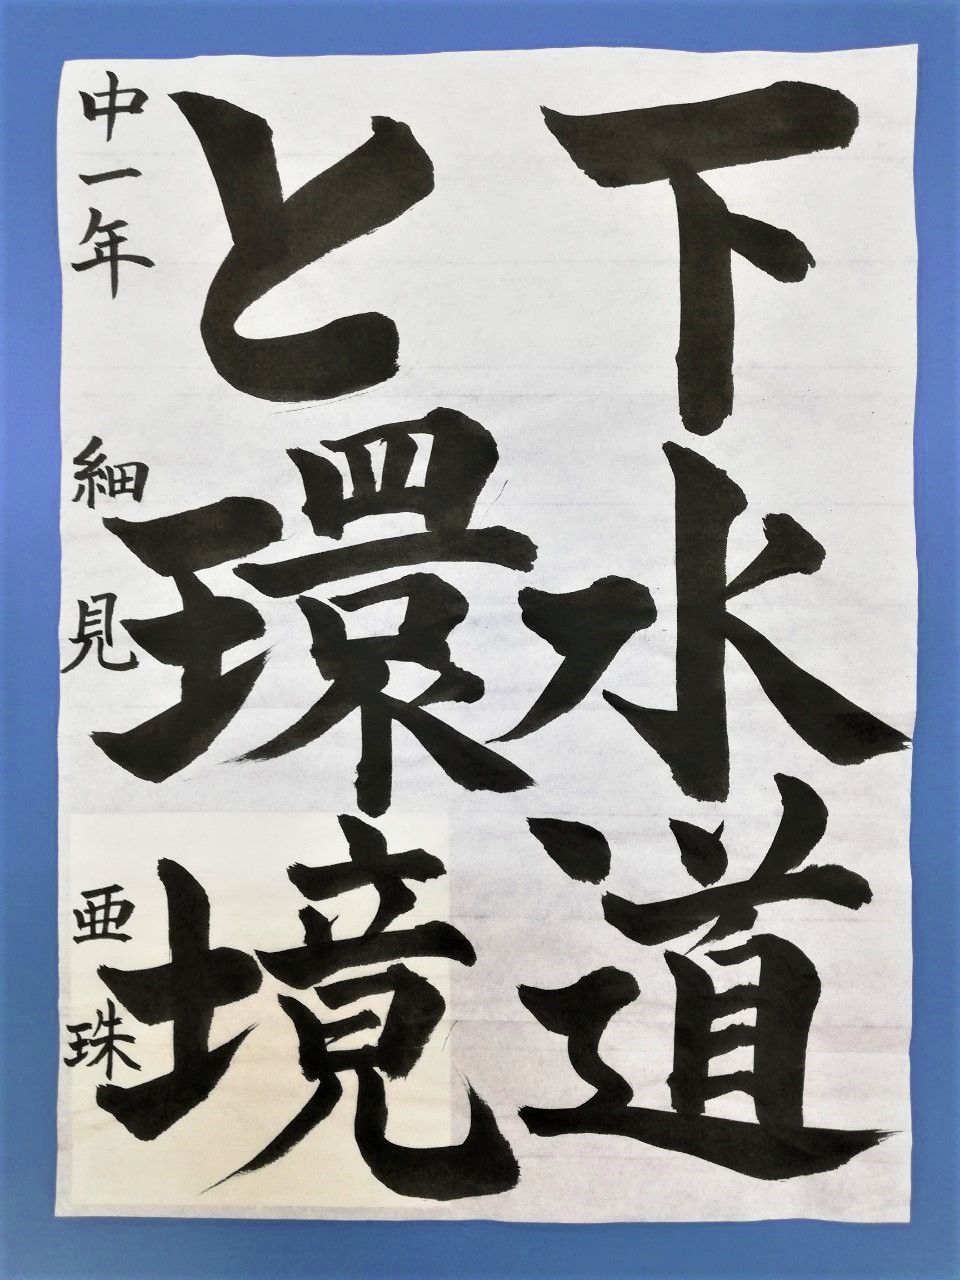 下水道
と環境
中一年 細見亜珠